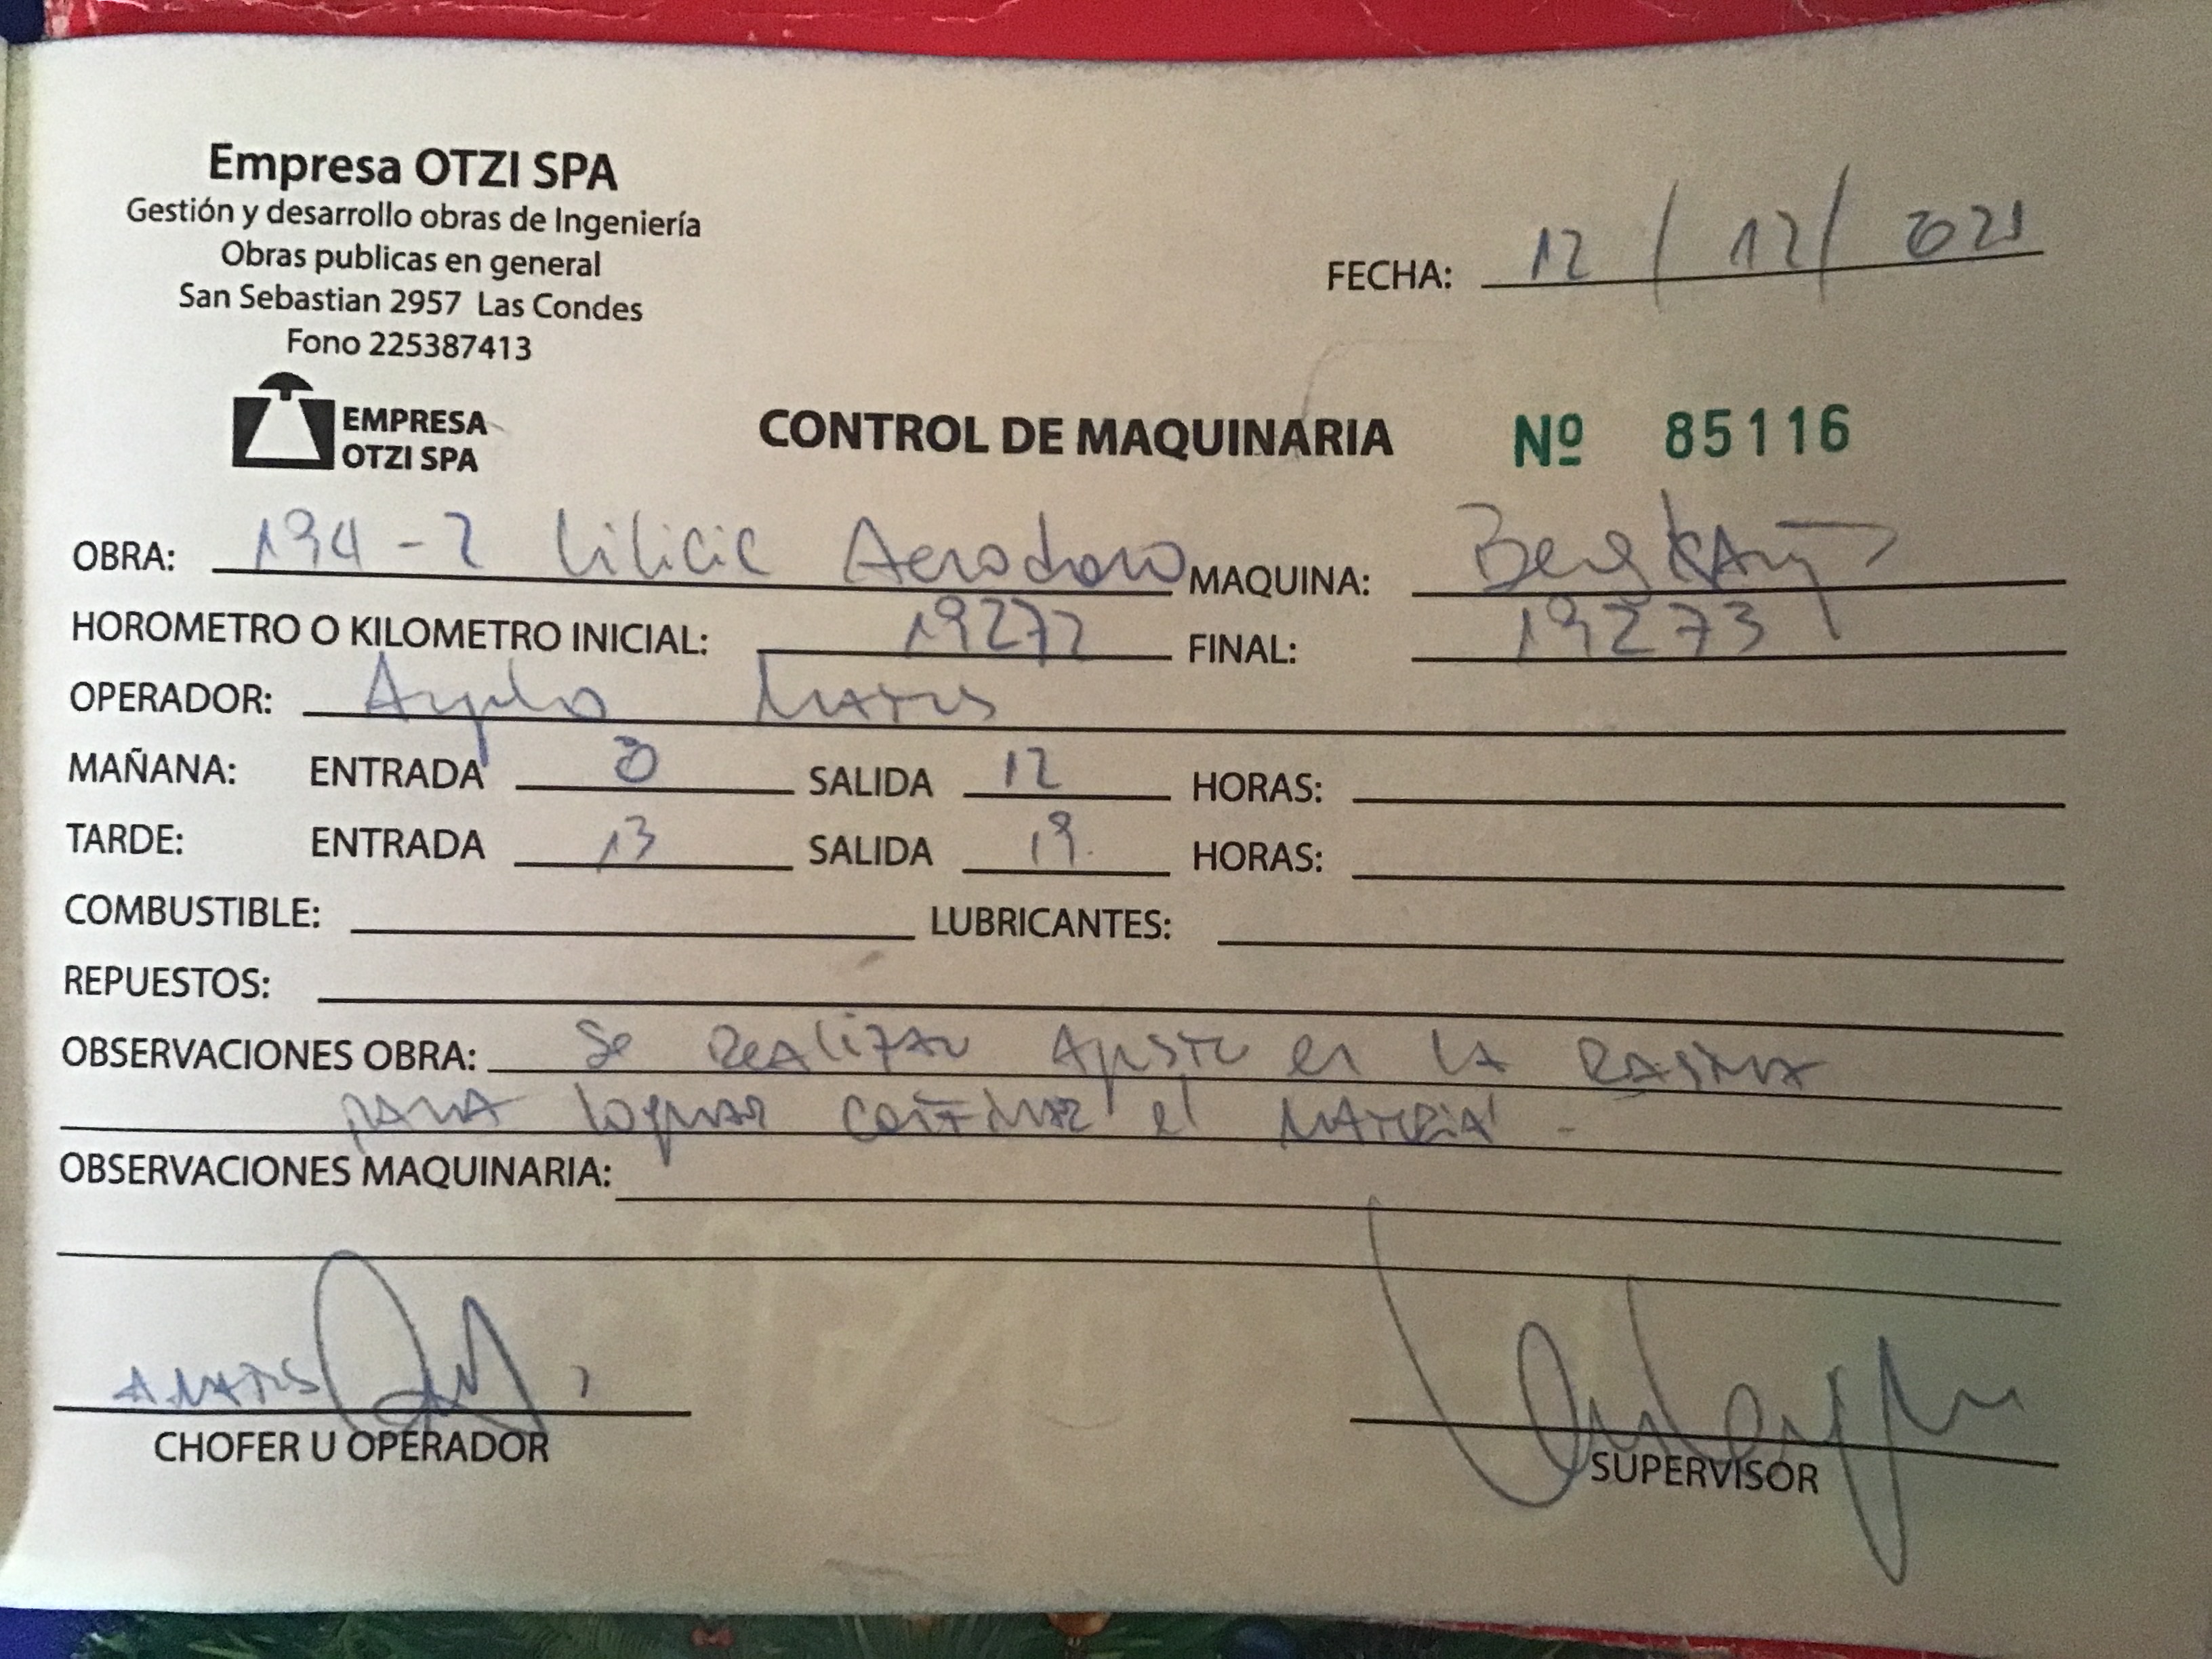 Empresa OTZI SPA
Gestión y desarrollo obras de Ingeniería
Obras publicas en general
San Sebastian 2957 Las Condes
Fono 225387413
FECHA: 12 / 12 / 021
EMPRESA
OTZI SPA
CONTROL DE MAQUINARIA Nº 85116
OBRA: 194-2 Lilicic Aerodromo MAQUINA:
HOROMETRO O KILOMETRO INICIAL: 19272 FINAL: 19273
OPERADOR: Angelo
MAÑANA: ENTRADA 8 SALIDA 12 HORAS:
TARDE: ENTRADA 13 SALIDA 19 HORAS:
COMBUSTIBLE: LUBRICANTES:
REPUESTOS:
OBSERVACIONES OBRA: Se realizan ajuste en la
para lograr el material.
OBSERVACIONES MAQUINARIA:
CHOFER U OPERADOR
SUPERVISOR